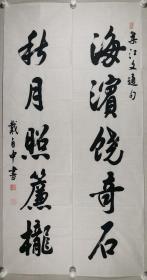 集江文通句
海濱饒奇石
秋月照簾櫳
戴自中書